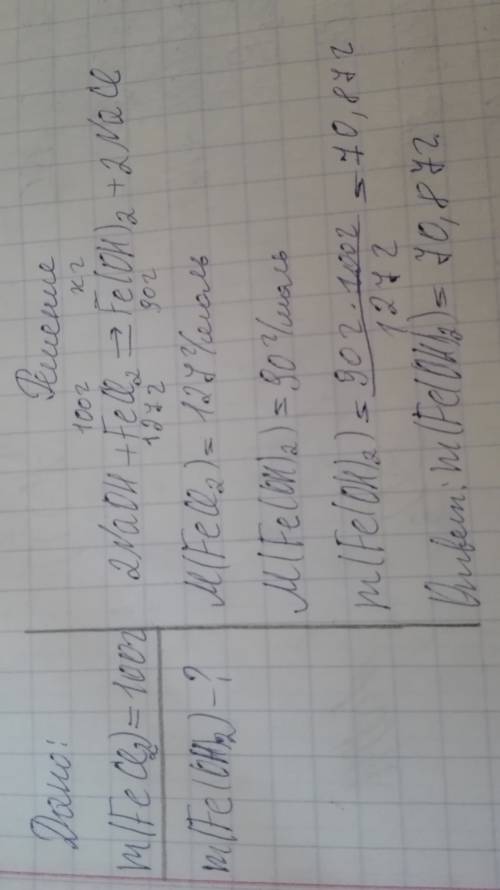 Дано:
m(FeCl2)=100г
m(Fe(OH)2)-?
Решение
100г xг
2NaOH+FeCl2→Fe(OH)2+2NaCl
127г 90г
M(FeCl2)=127г/моль
M(Fe(OH)2)=90г/моль
m(Fe(OH)2)=90г·100г/127г=70,87г
Ответ: m(Fe(OH)2)=70,87г.